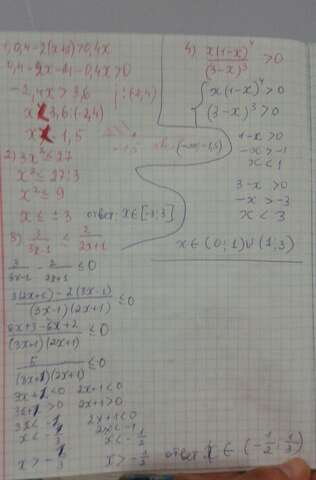 1) 0,4-2(x+2)>0,4x
0,4-2x-4-0,4x>0
-2,4x>3,6 | :(-2,4)
x<3,6:(-2,4)
x<-1,5
-1,5
(-∞;-1,5)
2) 3x² ≤ 27
x² ≤ 27:3
x² ≤ 9
x ≤ ± 3 ответ: x∈[-3;3]
3) 3/(3x-1) ≤ 2/(2x+1)
3/(3x-1) - 2/(2x+1) ≤ 0
(3(2x+1)-2(3x-1))/((3x-1)(2x+1)) ≤ 0
(6x+3-6x+2)/((3x-1)(2x+1)) ≤ 0
5/((3x-1)(2x+1)) ≤ 0
2x+1<0
2x+1>0
2x+1<0
2x<-1
x<-1/2
x>-1/2
ответ: x ∈ (-1/2; 1/3)
4) x(1-x)⁴/(3-x)³ >0
{ x(1-x)⁴>0
(3-x)³>0
1-x>0
-x>-1
x<1
3-x>0
-x>-3
x<3
x∈(0;1)∪(1;3)